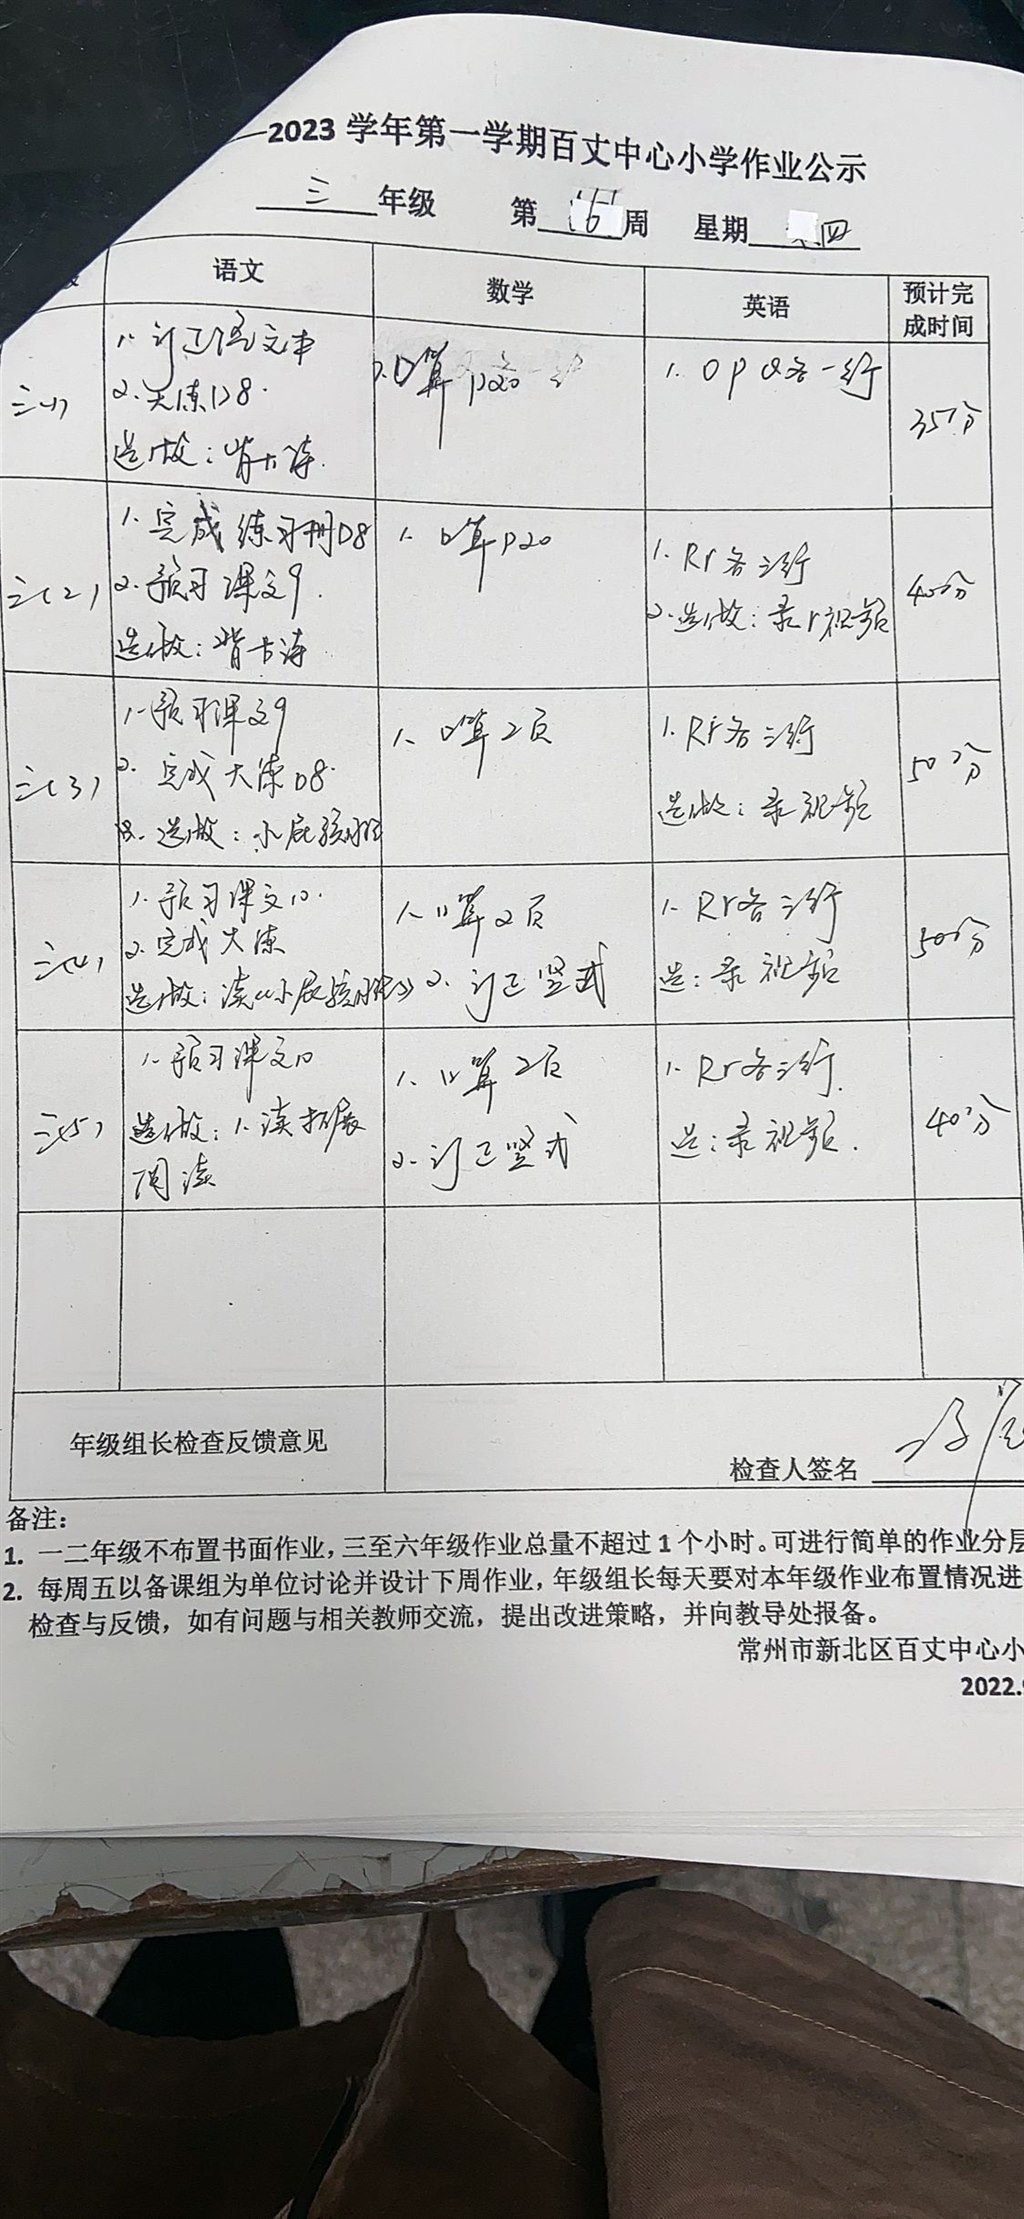 2023 学年第一学期百丈中心小学作业公示
三 年级 第 16 周 星期 四
语文 数学 英语 预计完成时间
三(1)
1. 订正语文本
2. 大练D8.
选做：背古诗.
1. 口算 P20
1. O P Q各一行
35分
三(2)
1. 完成 练习册D8
2. 预习课文9.
选做：背古诗
1. 口算 P20
1. Rr各三行
2. 选做：录r视频
40分
三(3)
1. 预习课文9
2. 完成大练D8.
选做：小屁孩
1. 口算2页
1. Rr各三行
选做：录视频
50分
三(4)
1. 预习课文10.
2. 完成大练
选做：读《小屁孩》
1. 口算2页
2. 订正竖式
1. Rr各三行
选：录视频
50分
三(5)
1. 预习课文10
选做：1. 读拓展
阅读
1. 口算2页
2. 订正竖式
1. Rr各三行.
选：录视频.
40分
年级组长检查反馈意见
检查人签名
备注：
1. 一二年级不布置书面作业，三至六年级作业总量不超过 1 个小时。可进行简单的作业分层
2. 每周五以备课组为单位讨论并设计下周作业，年级组长每天要对本年级作业布置情况进
检查与反馈，如有问题与相关教师交流，提出改进策略，并向教导处报备。
常州市新北区百丈中心小
2022.